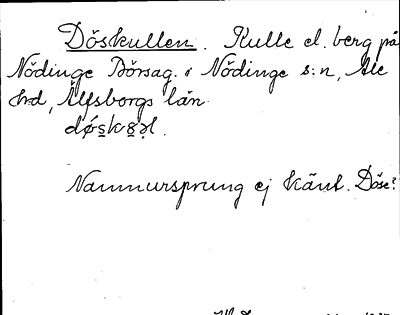 Döskullen. Kulle el. berg på
Nödinge Börsag. i Nödinge s:n, Ale
h:d, Älfsborgs län
Namnursprung ej känt. Döse?